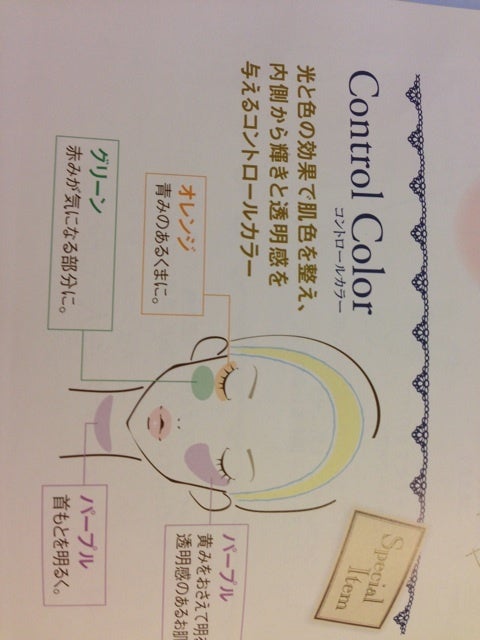 Control Color
コントロールカラー
光と色の効果で肌色を整え、
内側から輝きと透明感を
与えるコントロールカラー
Special
Item
オレンジ
青みのあるくまに。
グリーン
赤みが気になる部分に。
パープル
黄みをおさえて明
透明感のあるお肌
パープル
首もとを明るく。